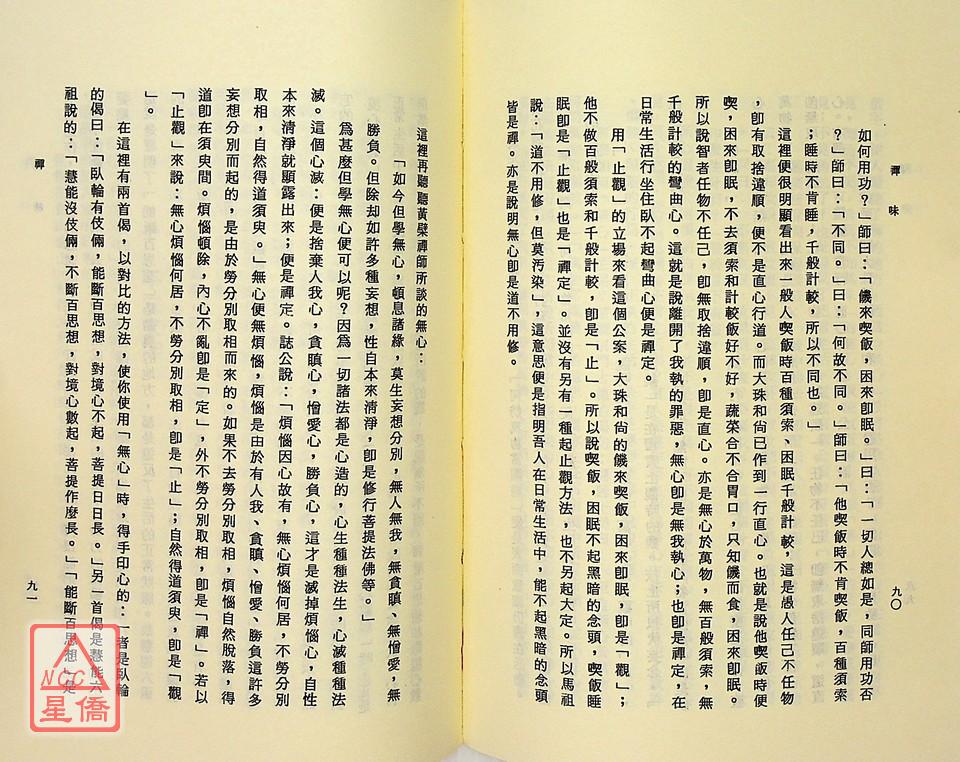 禪味
九〇
如何用功？」師曰：「饑來喫飯，困來卽眠。」曰：「一切人總如是，同師用功否
？」師曰：「不同。」曰：「何故不同。」師曰：「他喫飯時不肯喫飯，百種須索
；睡時不肯睡，千般計較，所以不同也。」
這裡便很明顯看出來一般人喫飯時百種須索、困眠千般計較，這是愚人任己不任物
，卽有取捨違順，便不是直心行道。而大珠和尚已作到一行直心。也就是說他喫飯時便
喫，困來卽眠，不去須索和計較飯好不好，蔬菜合不合胃口，只知饑而食，困來卽眠。
所以說智者任物不任己，卽無取捨違順，卽是直心。亦是無心於萬物，無百般須索，無
千般計較的彎曲心。這就是說離開了我執的罪惡，無心卽是無我執心；也卽是禪定，在
日常生活行坐住臥不起彎曲心便是禪定。
用「止觀」的立場來看這個公案，大珠和尚的饑來喫飯，困來卽眠，卽是「觀」；
他不做百般須索和千般計較，卽是「止」。所以說喫飯，困眠不起黑暗的念頭，喫飯睡
眠卽是「止觀」也是「禪定」。並沒有另有一種起止觀方法，也不另起大定。所以馬祖
說：「道不用修，但莫汚染」，這意思便是指明吾人在日常生活中，能不起黑暗的念頭
皆是禪。亦是說明無心卽是道不用修。
這裡再聽聽黃檗禪師所談的無心：
「如今但學無心，頓息諸緣，莫生妄想分別，無人無我，無貪瞋、無憎愛，無
勝負。但除却如許多種妄想，性自本來清淨，卽是修行菩提法佛等。」
為甚麼但學無心便可以呢？因為一切諸法都是心造的，心生種種法生，心滅種種法
滅。這個心滅：便是捨棄人我心，貪瞋心，憎愛心，勝負心，這才是滅掉煩惱心，自性
本來清淨就顯露出來；便是禪定。誌公說：「煩惱因心故有，無心煩惱何居，不勞分別
取相，自然得道須臾。」無心便無煩惱，煩惱是由於有人我、貪瞋、憎愛、勝負這許多
妄想分別而起的，是由於勞分別取相而來的。如果不去勞分別取相，煩惱自然脫落，得
道卽在須臾間。煩惱頓除，內心不亂卽是「定」，外不勞分別取相，卽是「禪」。若以
「止觀」來說：無心煩惱何居，不勞分別取相，卽是「止」；自然得道須臾，卽是「觀
」。
在這裡有兩首偈，以對比的方法，使你使用「無心」時，得手印心的：一者是臥輪
的偈曰：「臥輪有伎倆，能斷百思想，對境心不起，菩提日日長。」另一首偈是慧能六
祖說的：「慧能沒伎倆，不斷百思想，對境心數起，菩提作麼長。」「能斷百思想」是
禪
九一
NCC
星僑